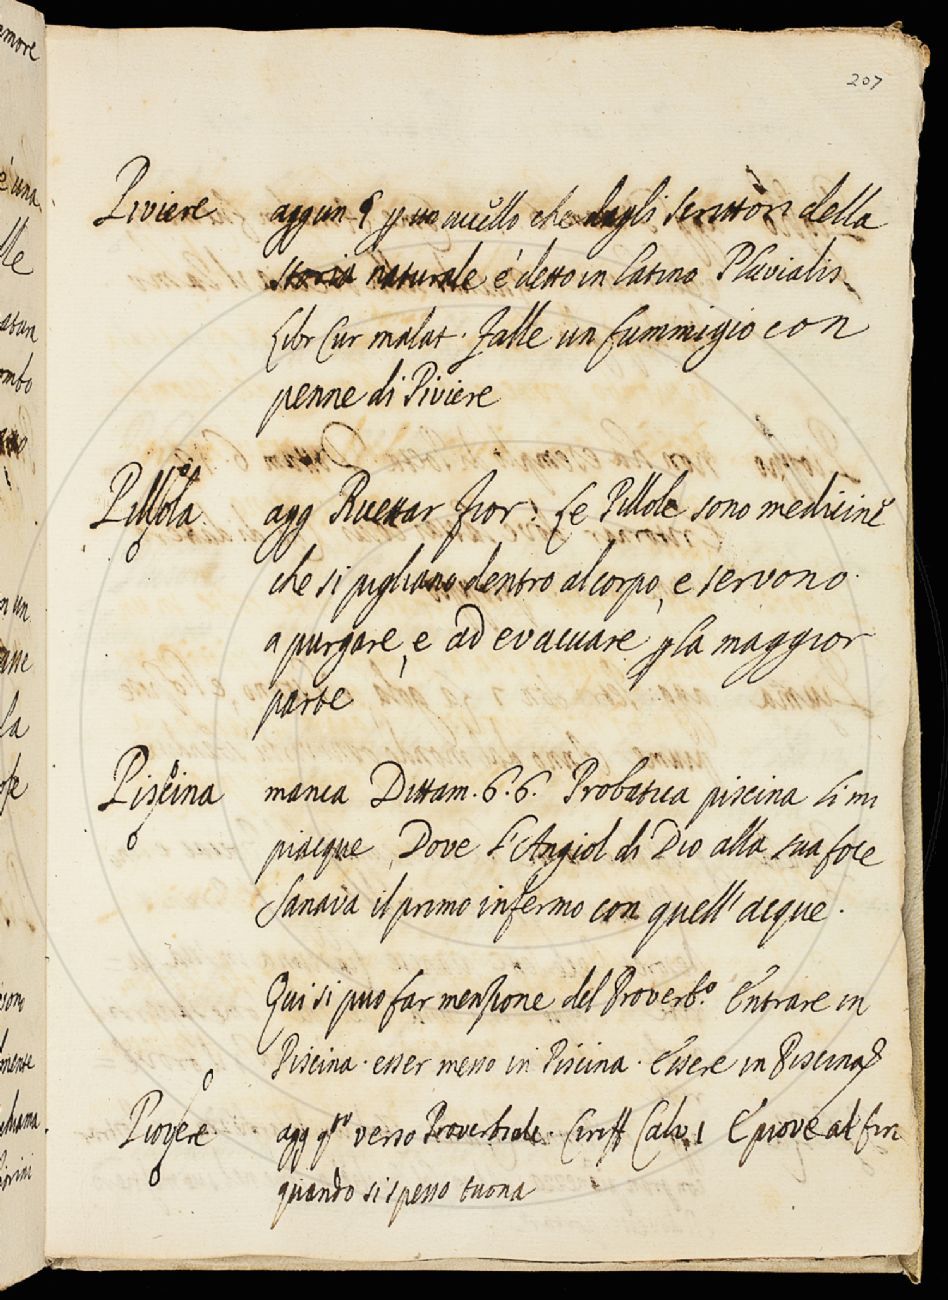 207
Piviere aggiun § p un uccello che dagli scrittori della
storia naturale é detto in latino Pluvialis
Libr Cur malat. Falle un fummigio con
penne di Piviere
Pillola agg Ricettar Fior: Le Pillole sono medicine
che si pigliano dentro al corpo, e servono
a purgare, e ad evacuare p la maggior
parte
Piscina manca Dittam. 6. 6. Probatica piscina li mi
piacque Dove l'Angiol di Dio alla sua foce
Sanava il primo infermo con quell'acque.
Qui si puo far menzione del Proverb.o Entrare in
Piscina. esser messo in Piscina. Essere in Piscina
Piovere agg q.to verso Proverbiale. Ciriff Calv. 1 E piove al fin
quando si spesso tuona
amore
é una
lle
ombo
n un
la
mente